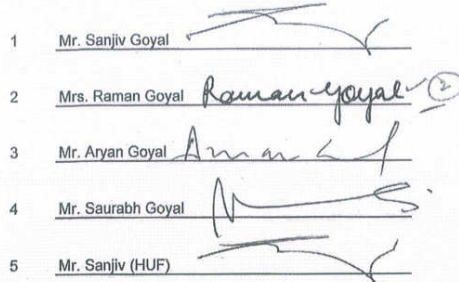 1 Mr. Sanjiv Goyal
2 Mrs. Raman Goyal Raman Goyal 2
3 Mr. Aryan Goyal
4 Mr. Saurabh Goyal
5 Mr. Sanjiv (HUF)